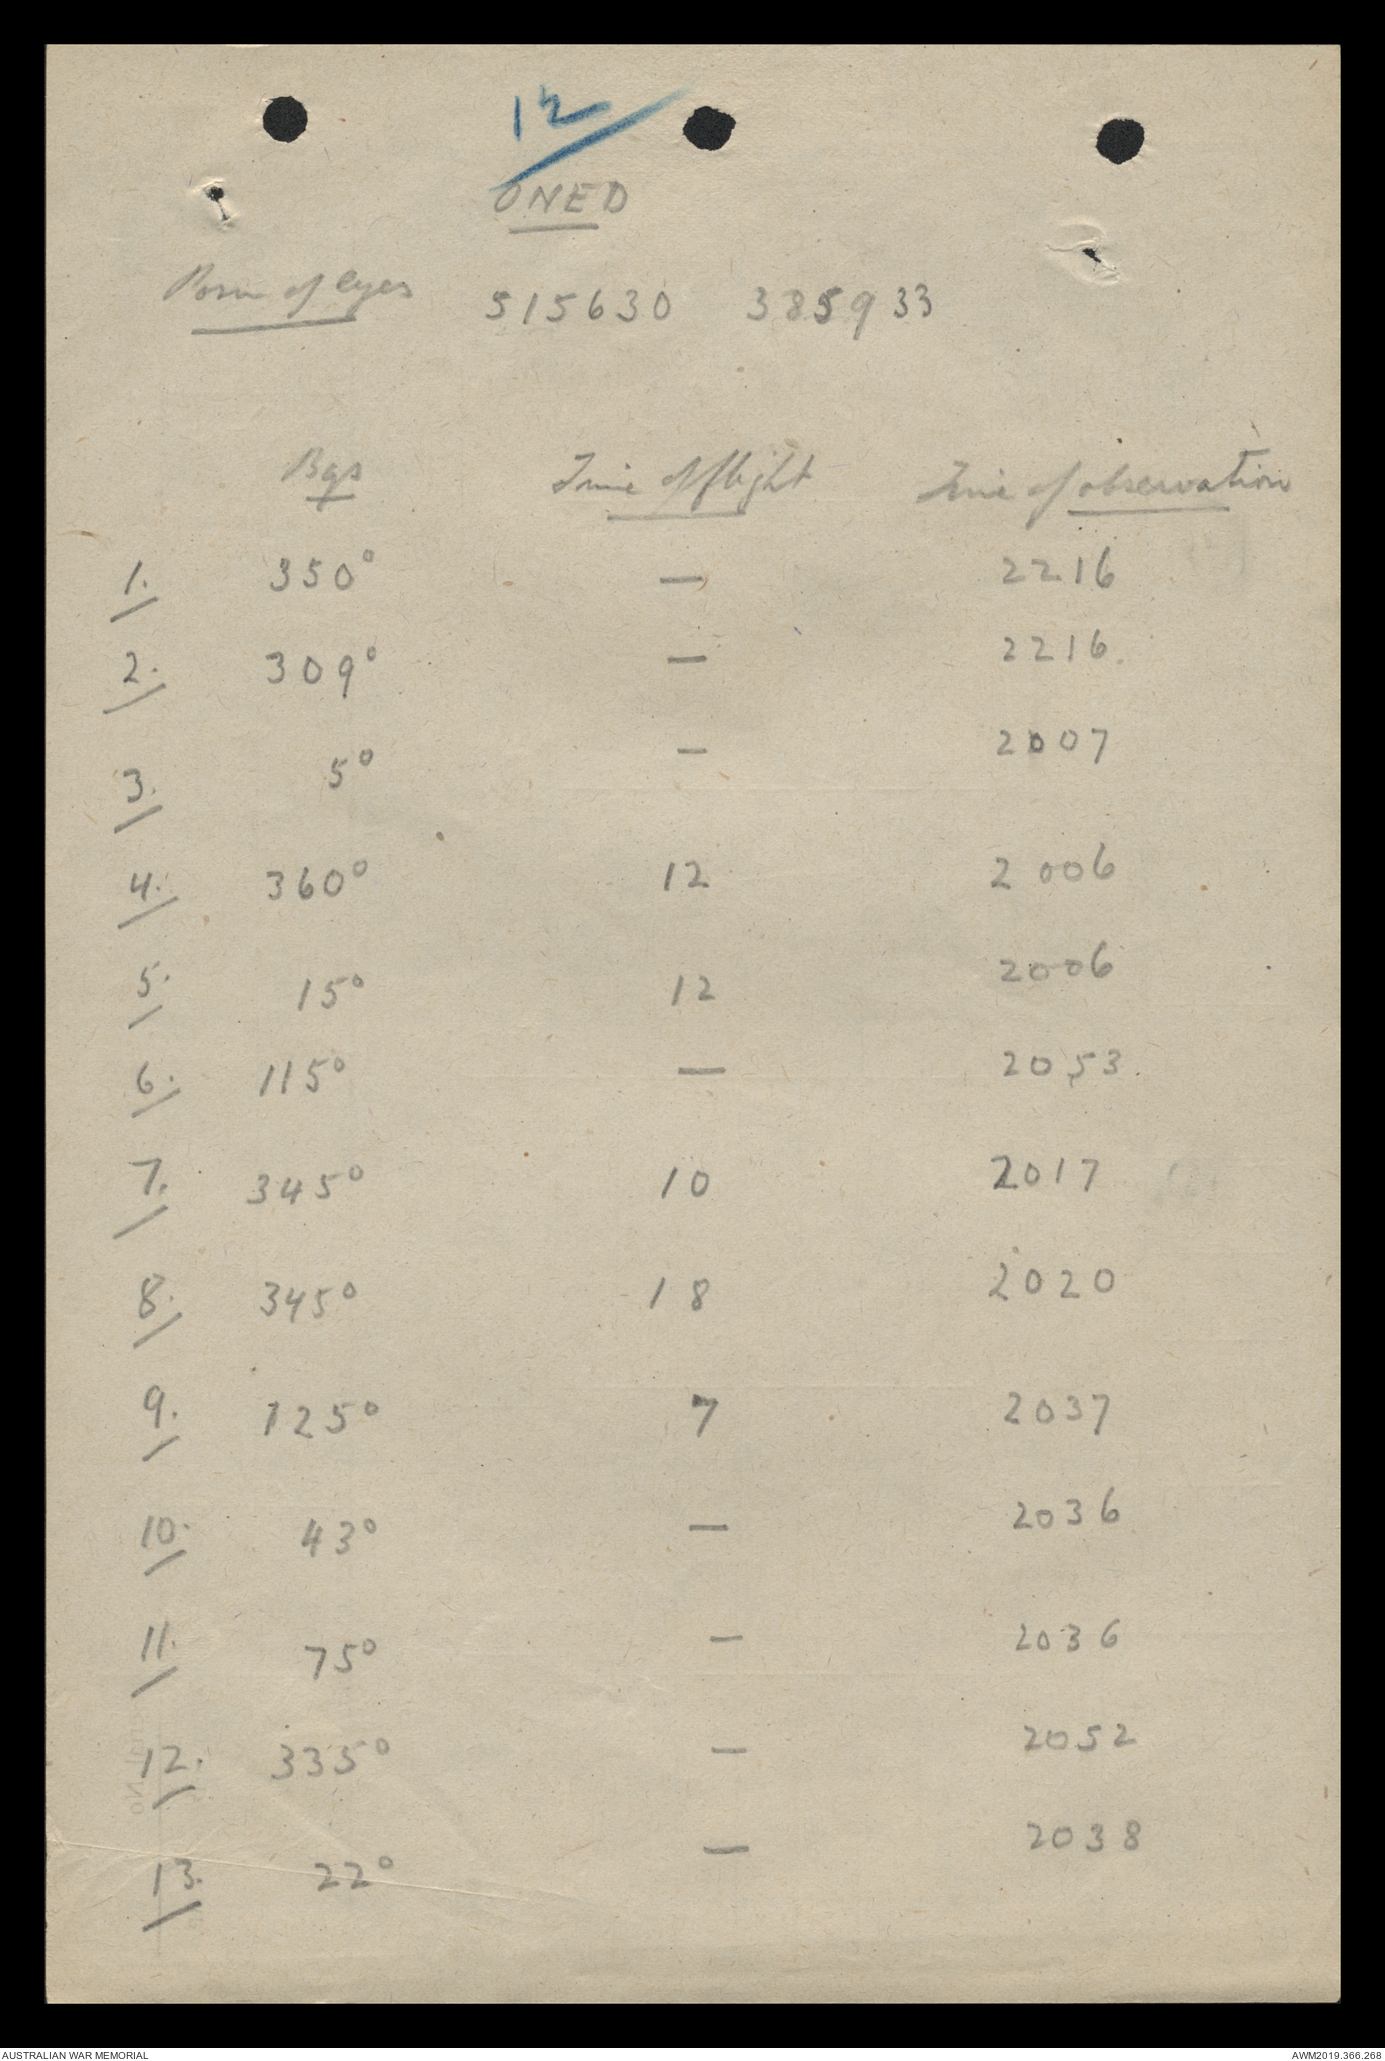 12
ONED
Posn of eyes 515630 385933
Bgs Time of flight Time of observation
1. 350° — 2216
2. 309° — 2216.
3. 5° — 2007
4. 360° 12 2006
5. 15° 12 2006
6. 115° — 2053.
7. 345° 10 2017
8. 345° 18 2020
9. 125° 7 2037
10. 43° — 2036
11. 75° — 2036
12. 335° — 2052
13. 22° — 2038
AUSTRALIAN WAR MEMORIAL AWM2019.366.268